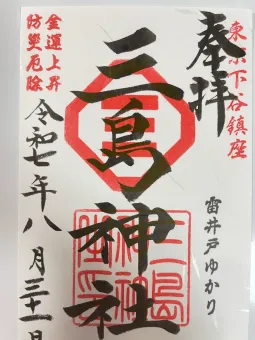 東京下谷鎮座
奉拝
雷井戸ゆかり
三島神社
三島神社之印
金運上昇
防災厄除
令和七年八月三十一日